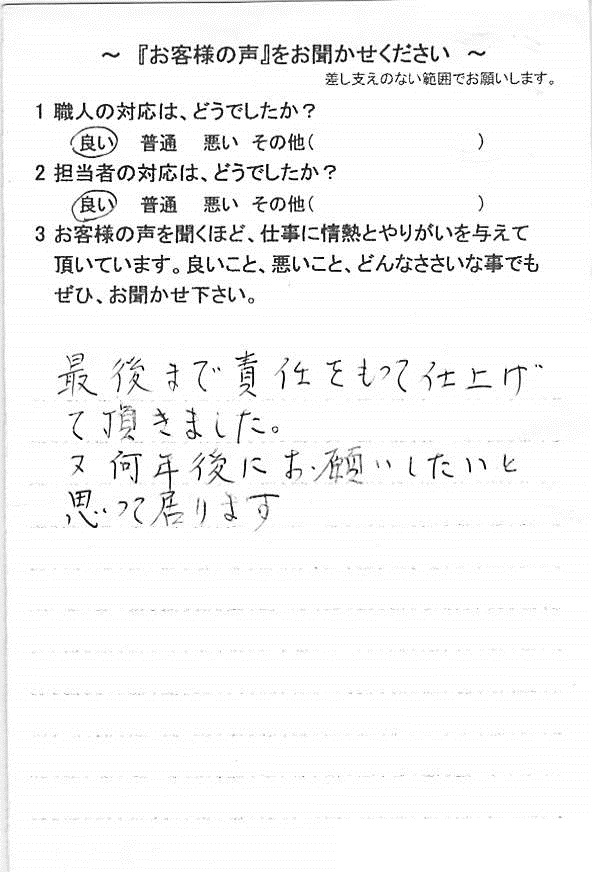 ～ 『お客様の声』をお聞かせください ～
差し支えのない範囲でお願いします。
1 職人の対応は、どうでしたか？
良い 普通 悪い その他( )
2 担当者の対応は、どうでしたか？
良い 普通 悪い その他( )
3 お客様の声を聞くほど、仕事に情熱とやりがいを与えて
頂いています。良いこと、悪いこと、どんなささいな事でも
ぜひ、お聞かせ下さい。
最後まで責任をもって仕上げ
て頂きました。
又何年後にお願いしたいと
思って居ります